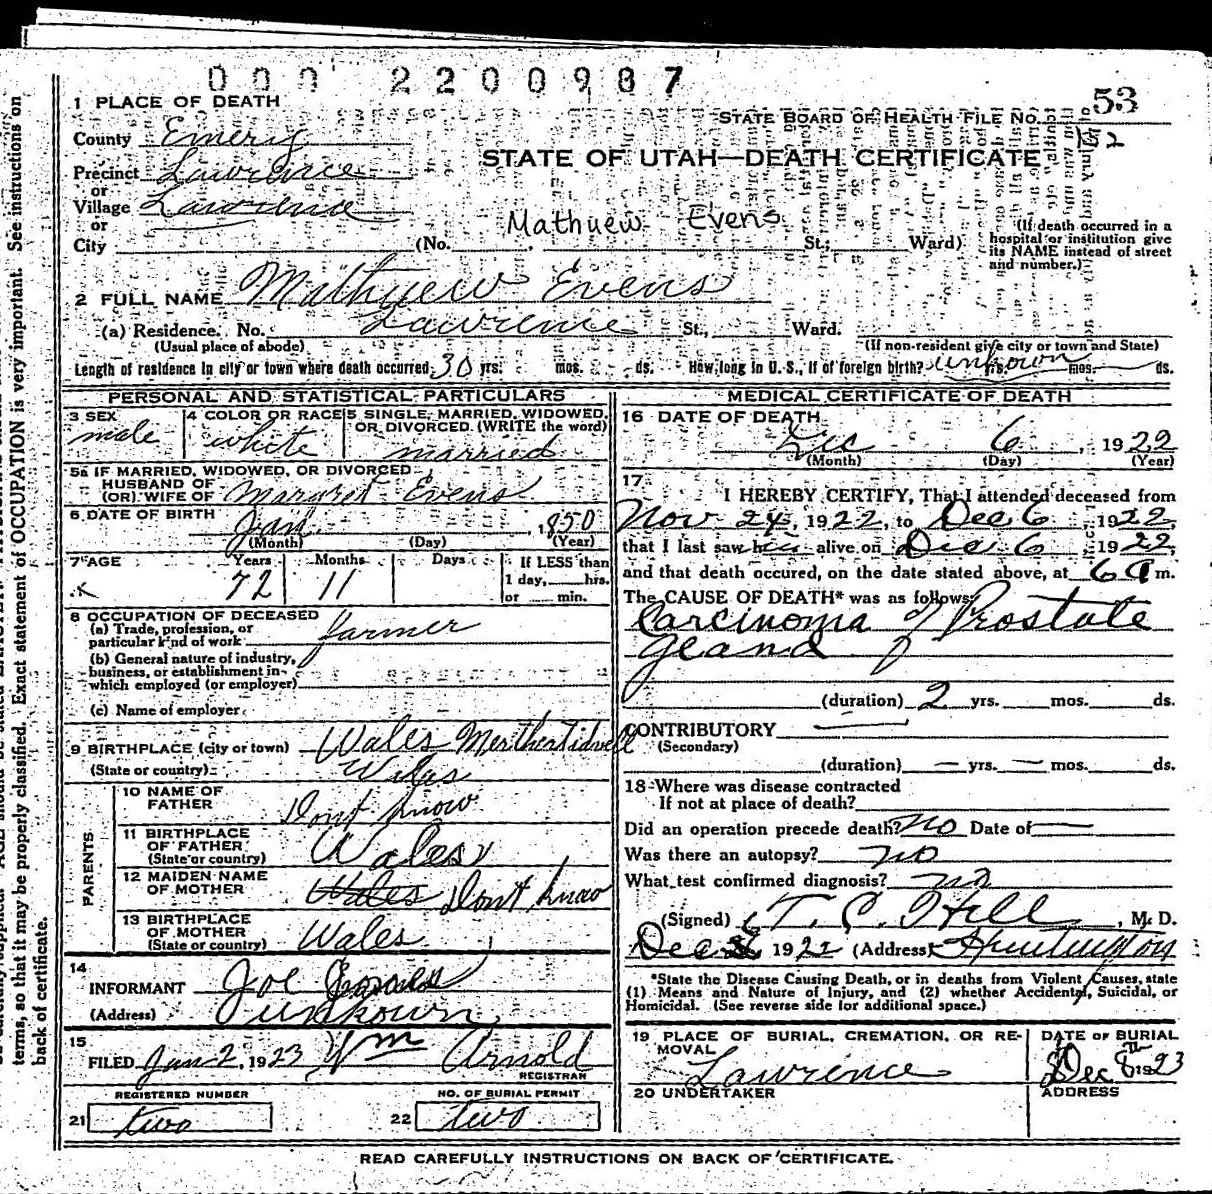 000 2200987
53
1 PLACE OF DEATH
STATE BOARD OF HEALTH FILE NO.
County Emery
STATE OF UTAH—DEATH CERTIFICATE
Precinct Lawrence
or
Village Lawrence
or
Mathuew Evens
City (No. St.; Ward)
(If death occurred in a hospital or institution give its NAME instead of street and number.)
2 FULL NAME Mathuew Evens
(a) Residence. No. Lawrence St., Ward.
(Usual place of abode) (If non-resident give city or town and State)
Length of residence in city or town where death occurred 30 yrs. mos. ds. How long in U. S., if of foreign birth? unkown yrs. mos. ds.
PERSONAL AND STATISTICAL PARTICULARS
3 SEX male
4 COLOR OR RACE white
5 SINGLE, MARRIED, WIDOWED, OR DIVORCED. (WRITE the word) married
5a IF MARRIED, WIDOWED, OR DIVORCED
HUSBAND OF
(OR) WIFE OF Margret Evens
6 DATE OF BIRTH Jan , 1850
(Month) (Day) (Year)
7 AGE Years Months Days If LESS than
72 11 1 day, hrs.
or min.
8 OCCUPATION OF DECEASED
(a) Trade, profession, or
particular kind of work farmer
(b) General nature of industry,
business, or establishment in
which employed (or employer)
(c) Name of employer
9 BIRTHPLACE (city or town) Wales Merther Tidvell
(State or country) Wales
PARENTS
10 NAME OF FATHER Dont know
11 BIRTHPLACE OF FATHER (State or country) Wales
12 MAIDEN NAME OF MOTHER Wales Dont know
13 BIRTHPLACE OF MOTHER (State or country) Wales
14
INFORMANT Joe
(Address) unkown
15
FILED Jan 2, 1923 Wm Arnold
REGISTRAR
REGISTERED NUMBER NO. OF BURIAL PERMIT
21 two 22 two
MEDICAL CERTIFICATE OF DEATH
16 DATE OF DEATH
Dec 6, 1922
(Month) (Day) (Year)
17
I HEREBY CERTIFY, That I attended deceased from
Nov 24, 1922, to Dec 6, 1922,
that I last saw him alive on Dec 6 1922,
and that death occured, on the date stated above, at 6 A m.
The CAUSE OF DEATH* was as follows:
Carcinoma of Prostate
Gland
(duration) 2 yrs. mos. ds.
CONTRIBUTORY —
(Secondary)
(duration) — yrs. — mos. ds.
18 Where was disease contracted
If not at place of death?
Did an operation precede death? No Date of —
Was there an autopsy? no
What test confirmed diagnosis? no
(Signed) T. C. Hill, M. D.
Dec 1922 (Address) Huntington
*State the Disease Causing Death, or in deaths from Violent Causes, state
(1) Means and Nature of Injury, and (2) whether Accidental, Suicidal, or
Homicidal. (See reverse side for additional space.)
19 PLACE OF BURIAL, CREMATION, OR REMOVAL
Lawrence
DATE OF BURIAL
Dec 8th 1923
20 UNDERTAKER
ADDRESS
READ CAREFULLY INSTRUCTIONS ON BACK OF CERTIFICATE.
terms, so that it may be properly classified. Exact statement of OCCUPATION is very important. See instructions on
back of certificate.